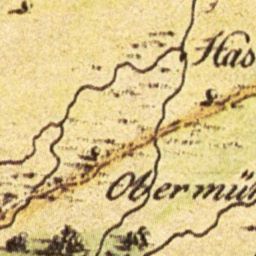 Has
Obermü